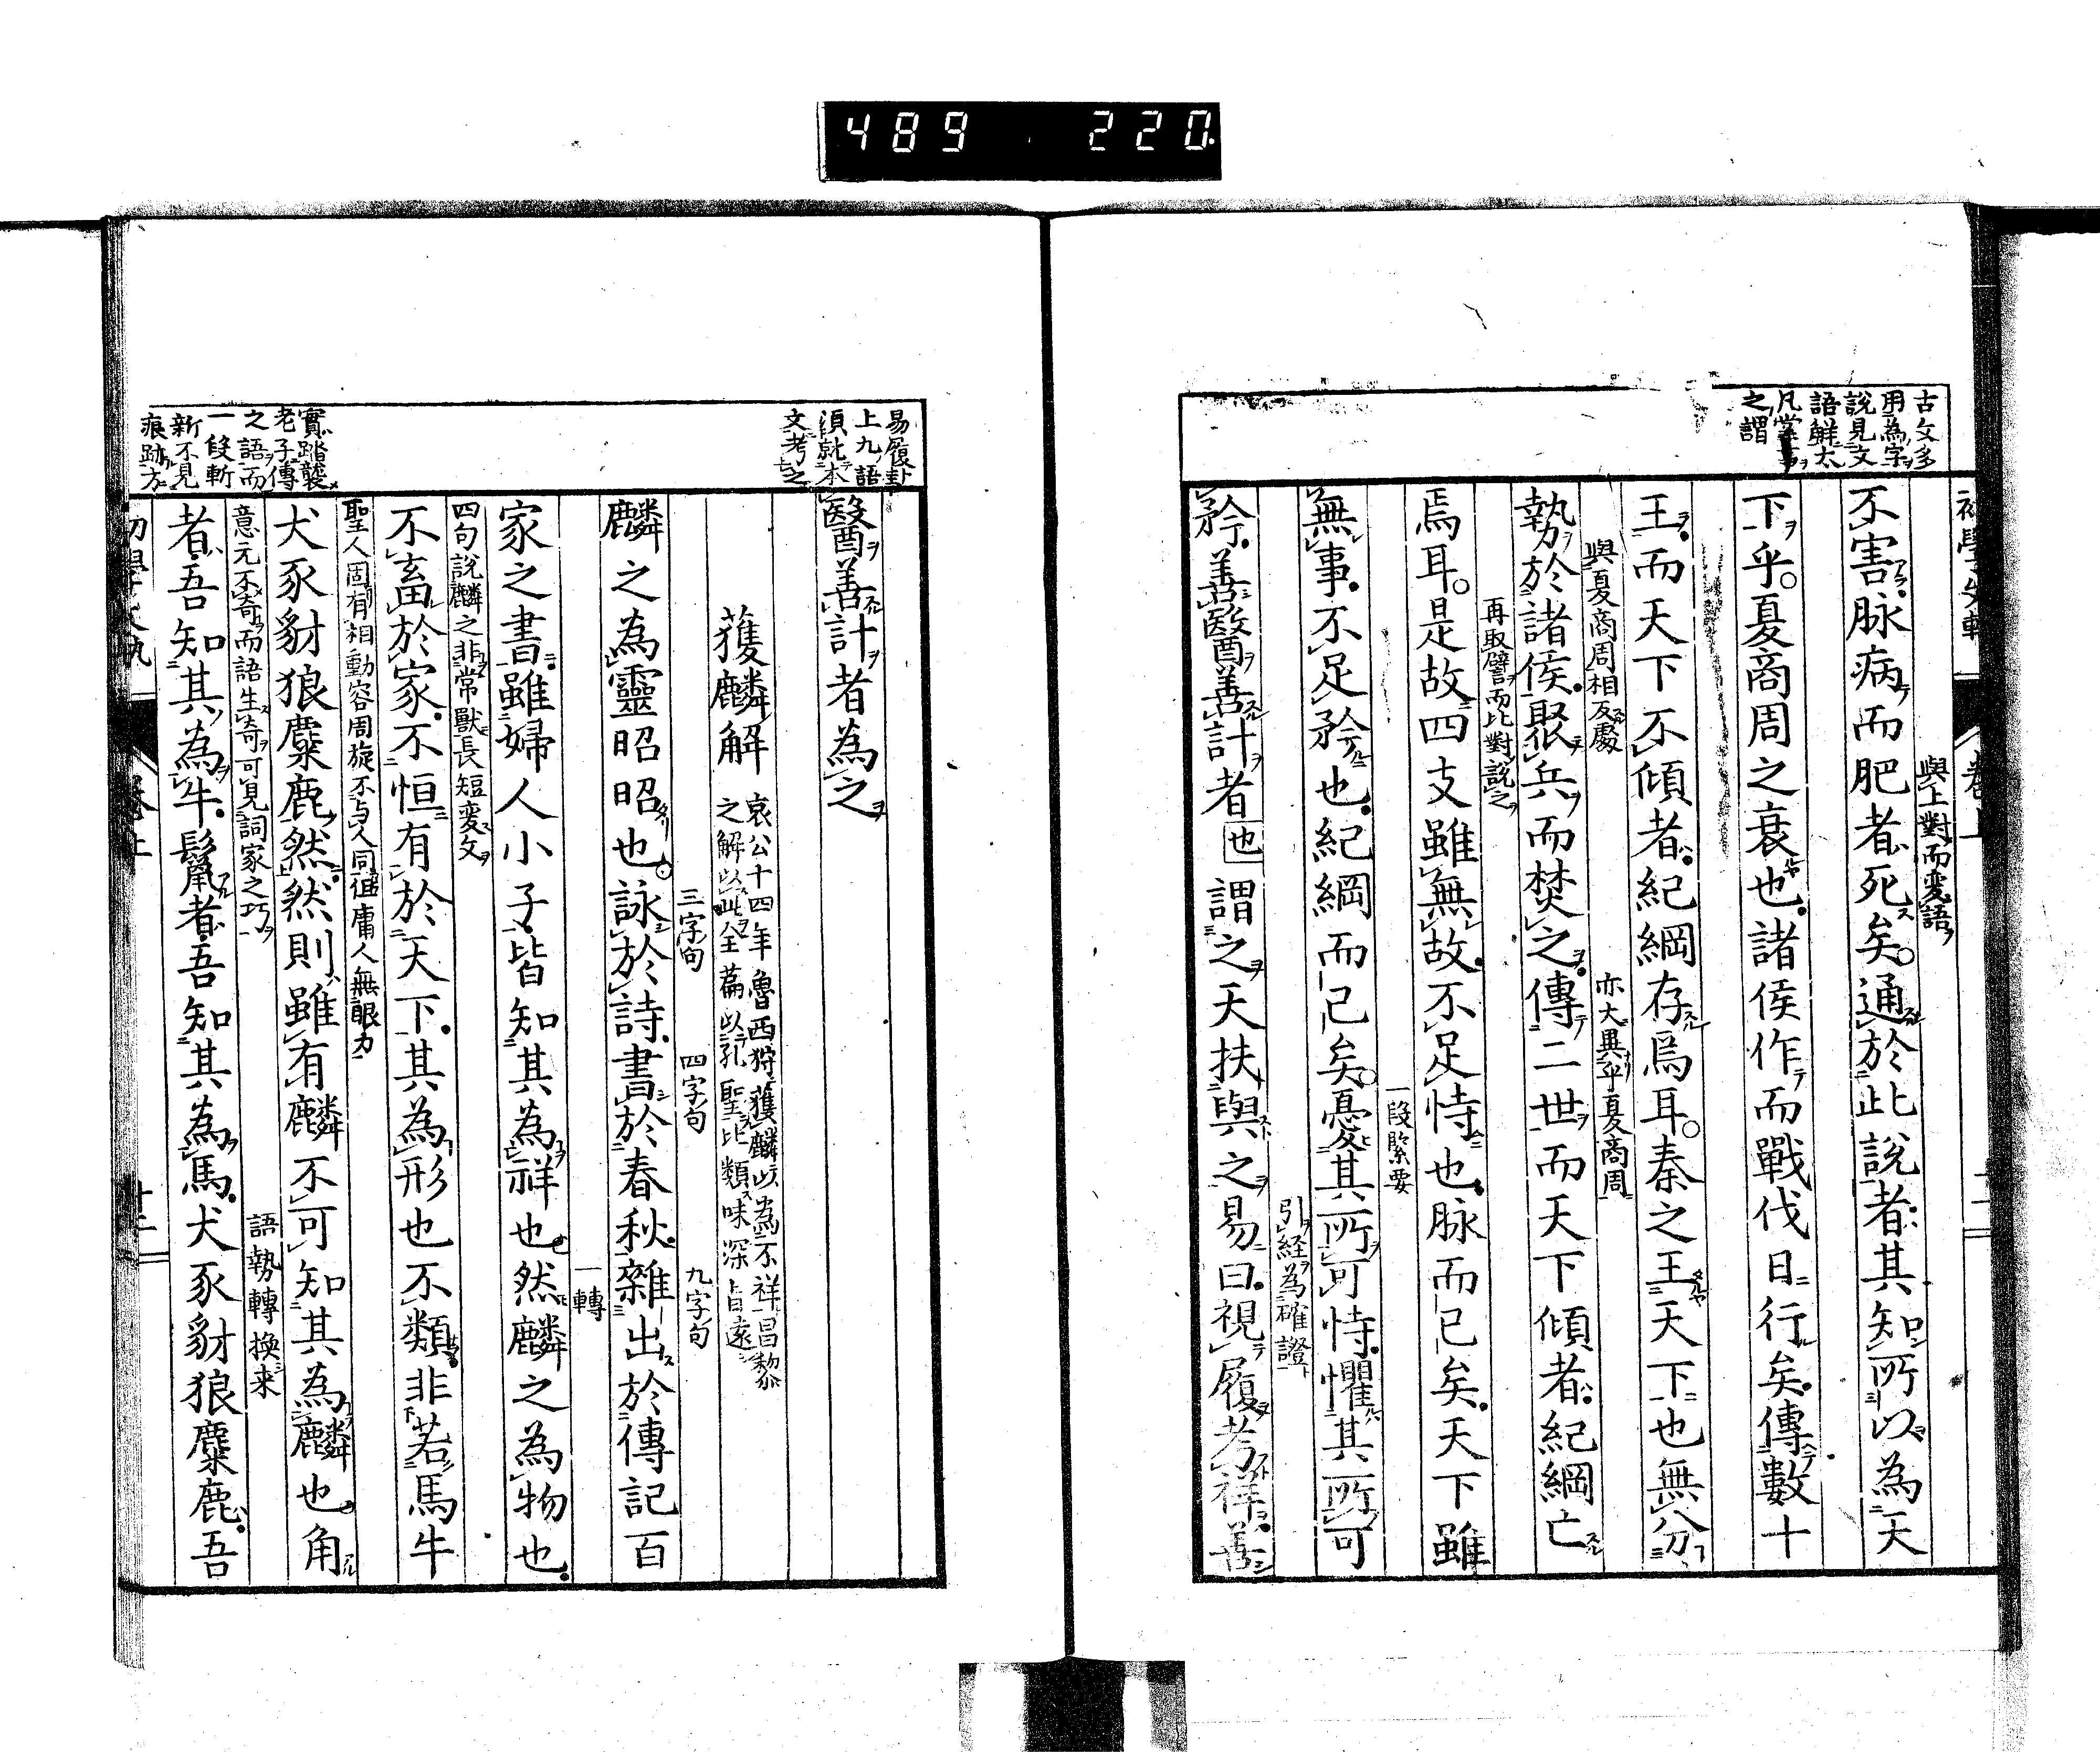 489 220
古文多
用為字
説見文
語解大
凡掌事
之謂
卷上
與上對而変語
不害脉病而肥者死矣通於此説者其知所以為天
下乎夏商周之衰也諸侯作而戰伐日行矣傳數十
王而天下不傾者紀綱存焉耳秦之王天下也無分
與夏商周相反處
亦大異乎夏商周
執於諸侯聚兵而焚之傳二世而天下傾者紀綱亡
再取譬而比對説之
焉耳是故四支雖無故不足恃也脉而已矣天下雖
一段緊要
無事不足矜也紀綱而已矣憂其所可恃懼其所可
引経為確證
矜善醫善計者也謂之天扶與之易曰視履考祥善
易履卦
上九語
須就本
文考之
醫善計者為之
獲麟解
哀公十四年魯西狩獲麟以為不祥昌黎
之解以此全篇以孔聖比類味深旨遠
三字句 四字句 九字句
麟之為靈昭昭也詠於詩書於春秋雜出於傳記百
一轉
家之書雖婦人小子皆知其為祥也然麟之為物也
四句説麟之非常獸長短変文
不畜於家不恒有於天下其為形也不類非若馬牛
聖人固有相動容周旋不与人同但庸人無眼力
實踏襲
老子傳
之語而
一段斬
新不見
痕跡方
犬豕豺狼麋鹿然然則雖有麟不可知其為麟也角
意元不奇而語生奇可見詞家之巧
語勢轉換来
者吾知其為牛鬣者吾知其為馬犬豕豺狼麋鹿吾